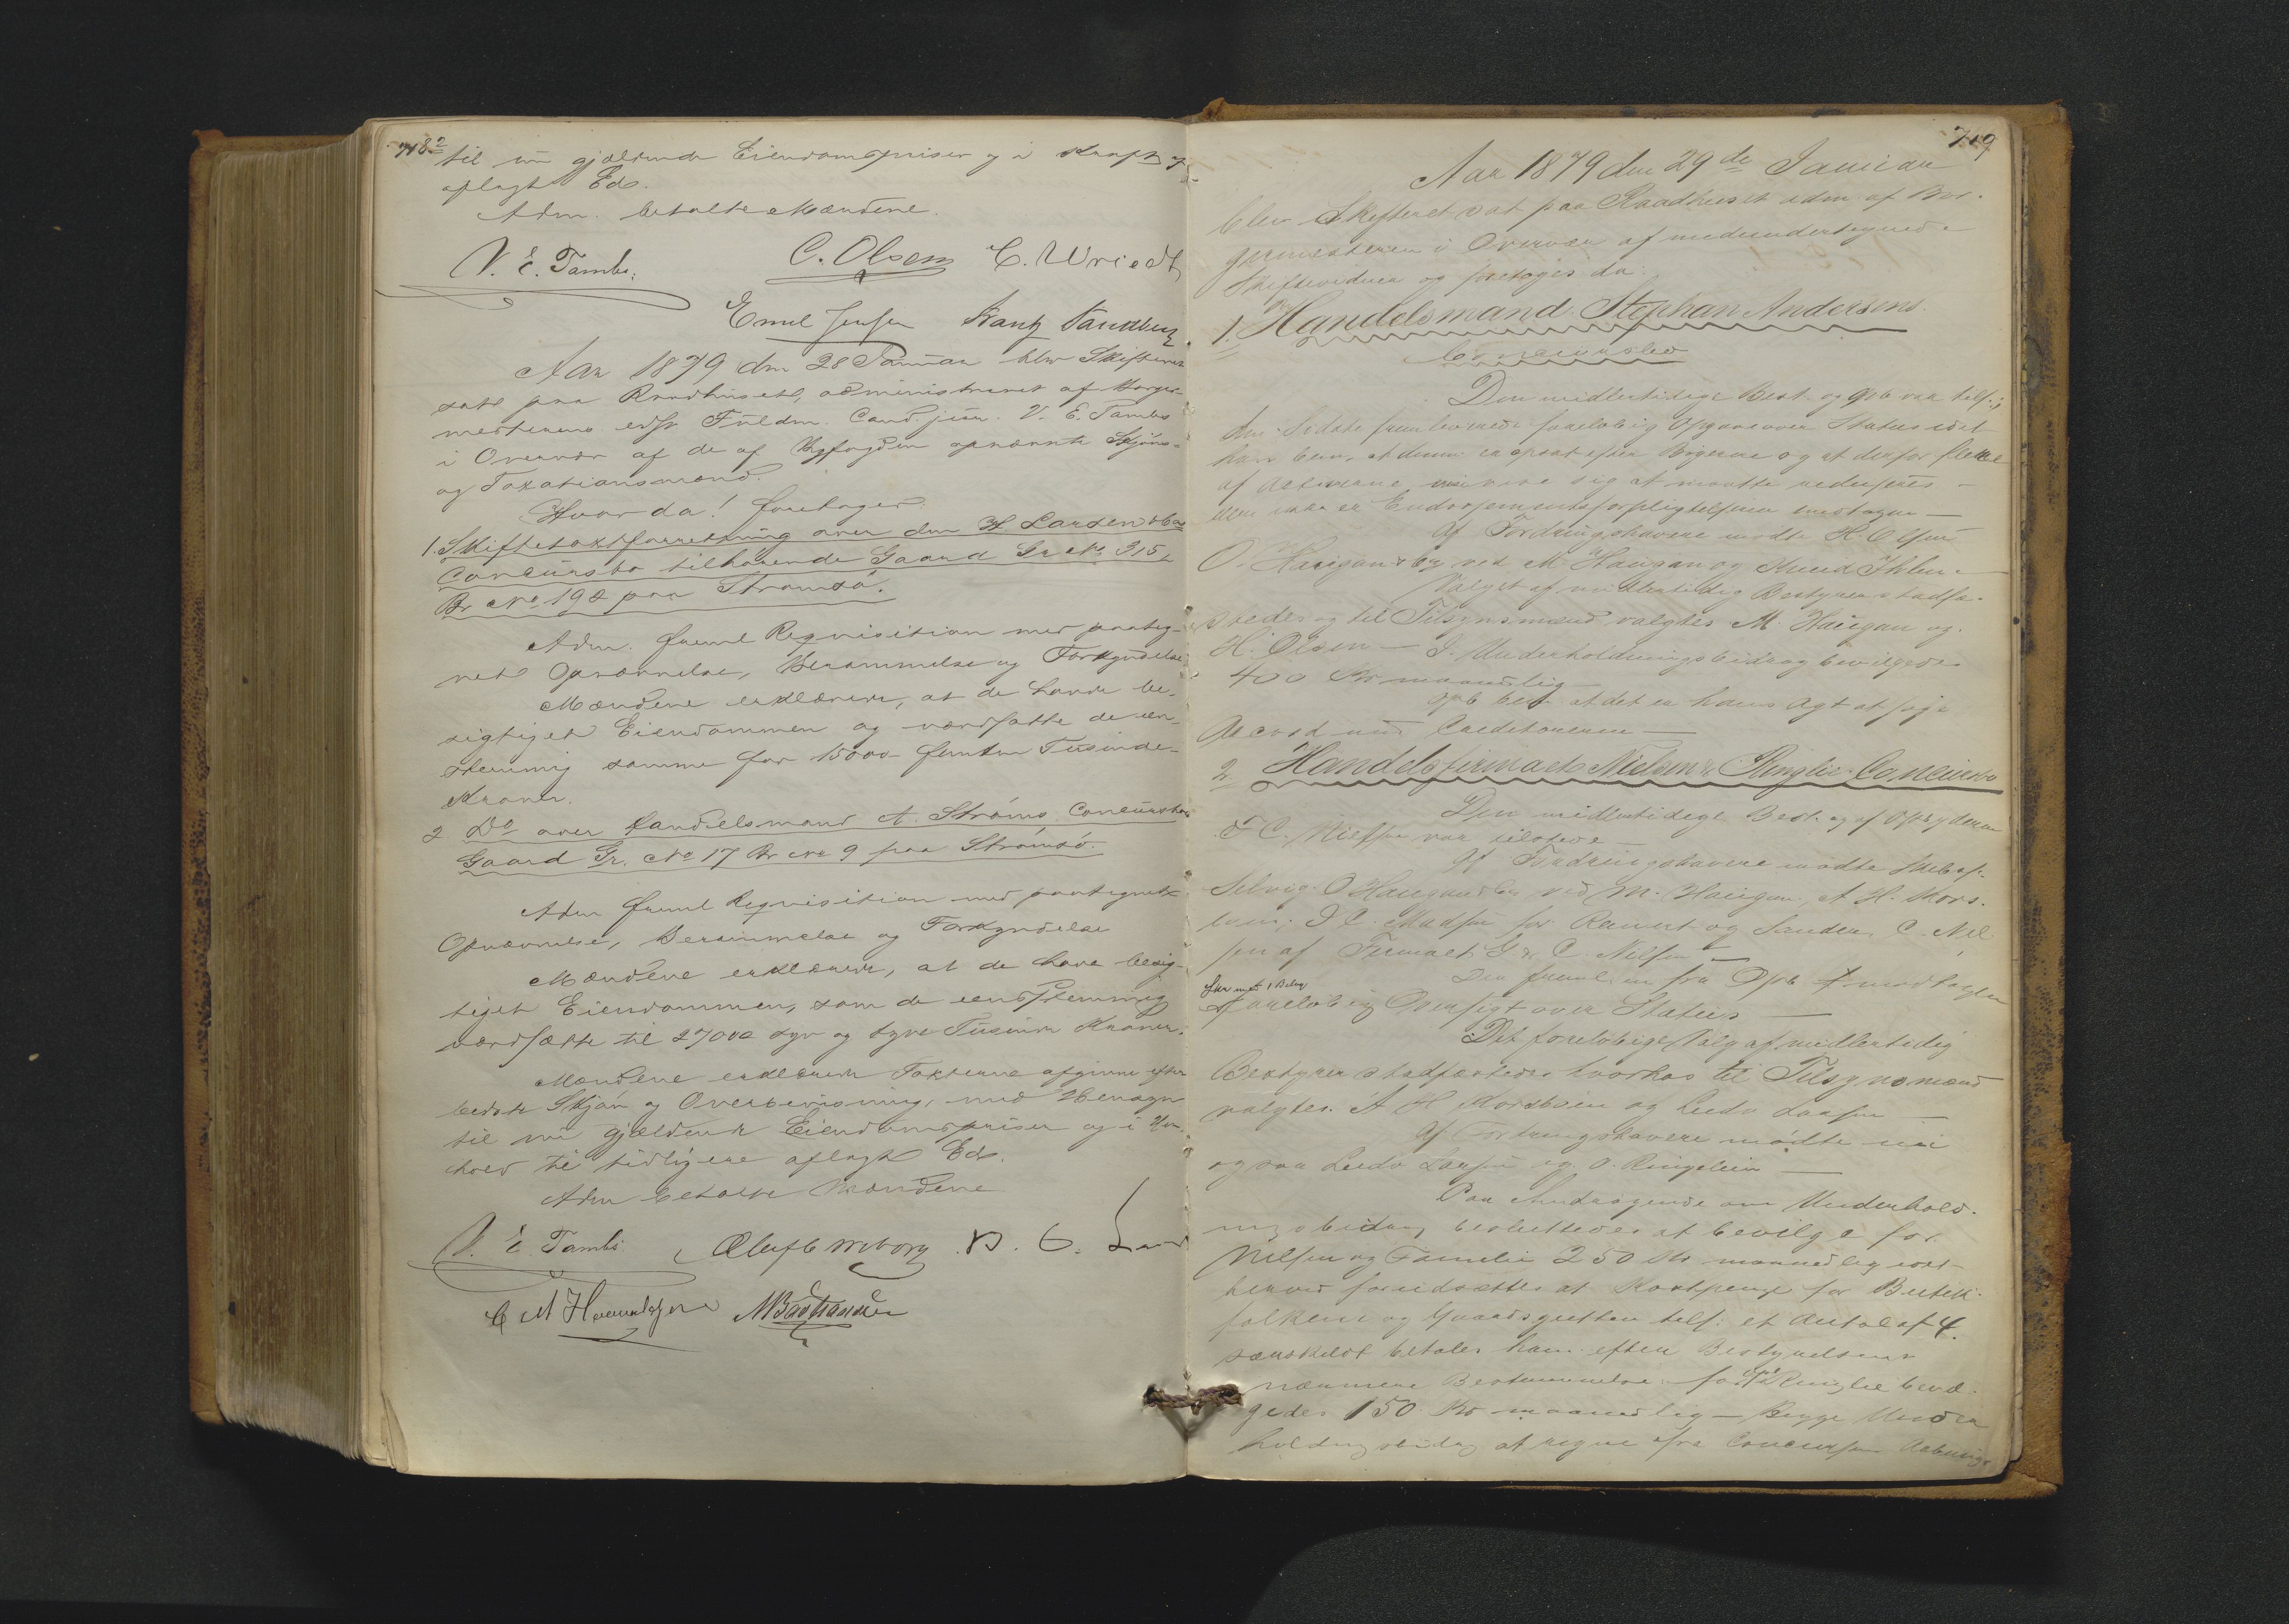 718
til nu gjældende Eiendomspriser og i Kraft af
aflagt Ed.
Adm. betalte Mændene.
V. E. Tambs. C. Olsen C. Wriedt
Emil Jensen
Aar 1879 den 28 Januar blev Skifteret
sat paa Raadhuset, administreret af Borger-
mesterens edsv Fuldm. Cand. jur. V. E. Tambs
i Overvær af de af Byfogden opnævnte Skjøns-
og Taxationsmænd.
Hvor da! foretoges
1. Skiftetaxtforretning over den H Larsen & Co
Concursbo tilhørende Gaard Gr No 315
Br No 192 paa Strømsø.
Adm. freml Reqvisition med paateg-
net Opnævnelse, Berammelse og Forkyndelse
Mændene erklærede, at de havde be-
sigtiget Eiendommen og værdsatte de een-
stemmig samme for 15000 femten Tusinde
Kroner.
2 Do over Handelsmand A. Strøms Concursbos
Gaard Gr. No 17 Br No 9 paa Strømsø.
Adm freml Reqvisition med paategnet
Opnævnelse, Berammelse og Forkyndelse
Mændene erklærede, at de have besig-
tiget Eiendommen, som de eenstemmig
værdsatte til 27000 syv og tyve Tusinde Kroner.
Mændene erklærede Taxterne afgivne efter
bedste Skjøn og Overbevisning, med Hensyn
til nu gjældende Eiendomspriser og i Hen-
hold til tidligere aflagt Ed.
Adm betalte Mændene
V. E. Tambs
719
Aar 1879 den 29de Januar
blev Skifteret sat paa Raadhuset adm af Bor-
germesteren i Overvær af medundertegnede
Skiftevidner og foretoges da:
1. Handelsmand Stephan Andersens
Concursbo
Den midlertidige Best. og Opb var tilst.;
den Sidste fremleverede foreløbig Opgave over Status idet
han bem. at denne er opsat efter Bøgerne og at derfor flere
af Activerne vil vise sig at maatte reduseres –
Endossementsforpligtelser
Af Fordringshavere mødte H Olsen
O. Haugan & Co ved M Haugan og Knud Ihlen
Valget af midlertidig Bestyrer stadfæ-
stedes og til Tilsynsmænd valgtes M. Haugan og
H. Olsen – I Underholdningsbidrag bevilgedes
400 Kr maanedlig
Opb bem. at det er hans Agt at søge
Accord med Creditorerne –
2. Handelsfirmaet Nielsen & Ringlie Concursbo
Den midlertidige Best. og af Opbyderne
C. Nielsen var tilstede –
Af Fordringshavere mødte
Selvig. O Haugan & Co ved M. Haugan, A H. Mors-
Madsen for Ravert og Sander, C. Niel-
sen af Firmaet G & C. Nielsen –
Den freml. en fra Opb modtagen
foreløbig Oversigt over Status –
Det foreløbige Valg af midlertidig
Bestyrer stadfæstedes hvorhos til Tilsynsmænd
valgtes A H og Ludv Larsen –
Af Fordringshavere mødte nu
ogsaa Ludv Larsen og O. –
Paa Andragende om Underhold-
ningsbidrag besluttedes at bevilge for
Nielsen og Familie 250 Kr maanedlig idet
herved forudsættes at Kostpenge for Butik-
folkene og Gaardsgutten tils: et Antal af 4
særskildt betales ham efter Bestyrelsens
nærmere Bestemmelse. for Ringlie bevil-
gedes 150 Kr maanedlig – Begge Under-
holdningsbidrag at regne fra Concursens Aabnings